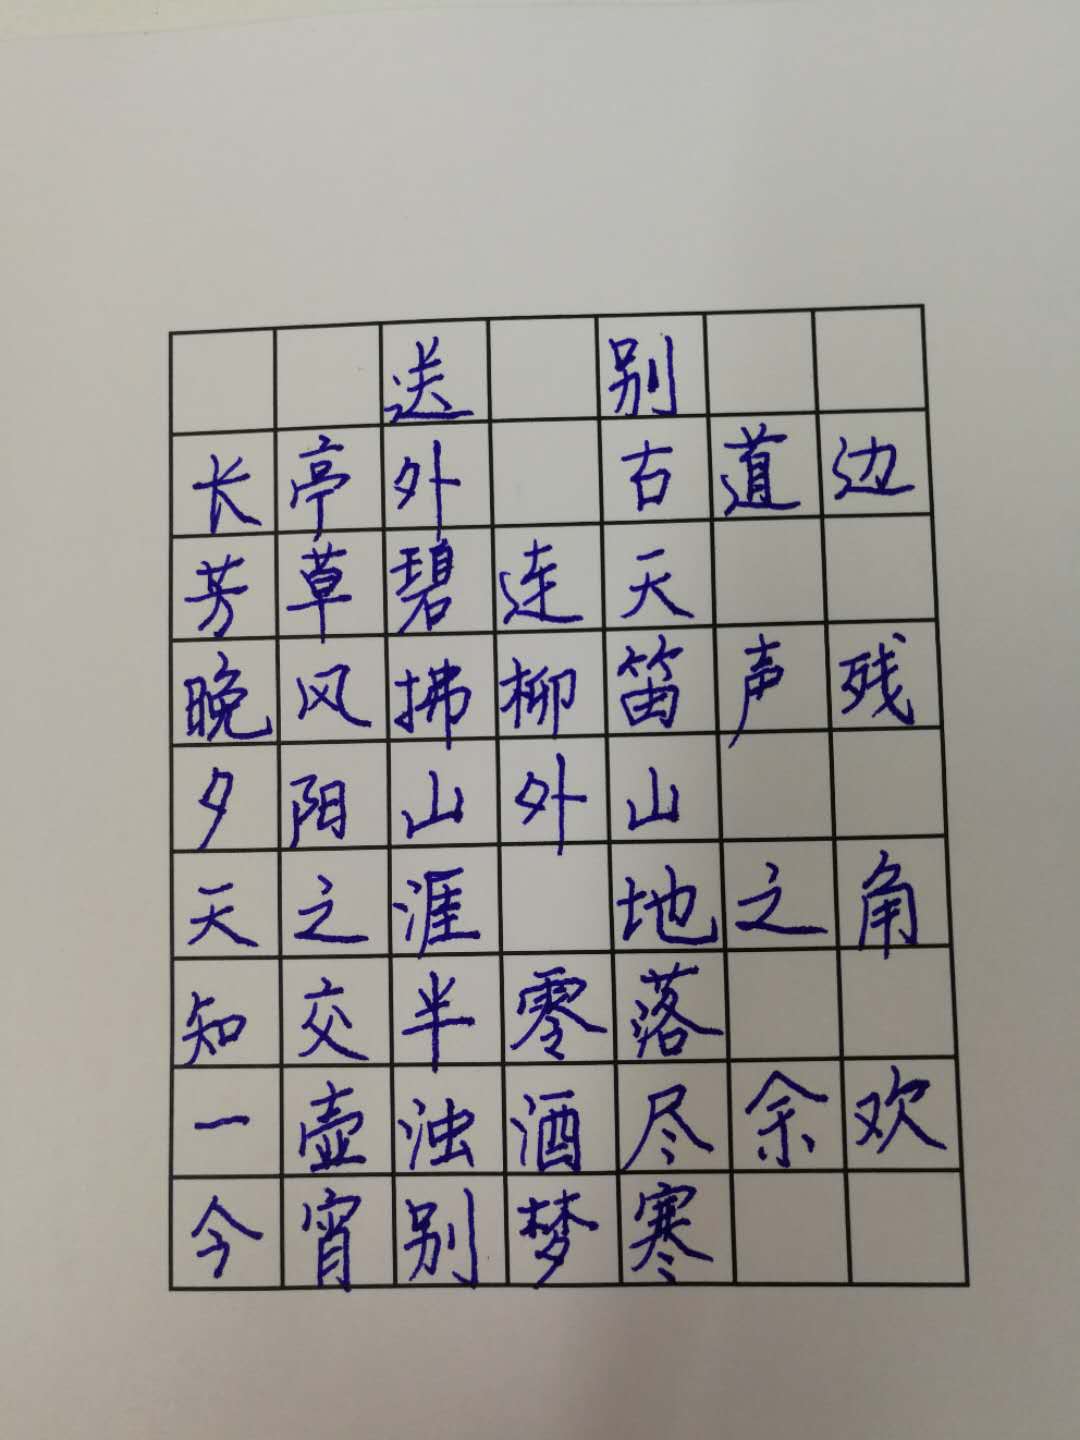 送 别
长亭外 古道边
芳草碧连天
晚风拂柳笛声残
夕阳山外山
天之涯 地之角
知交半零落
一壶浊酒尽余欢
今宵别梦寒